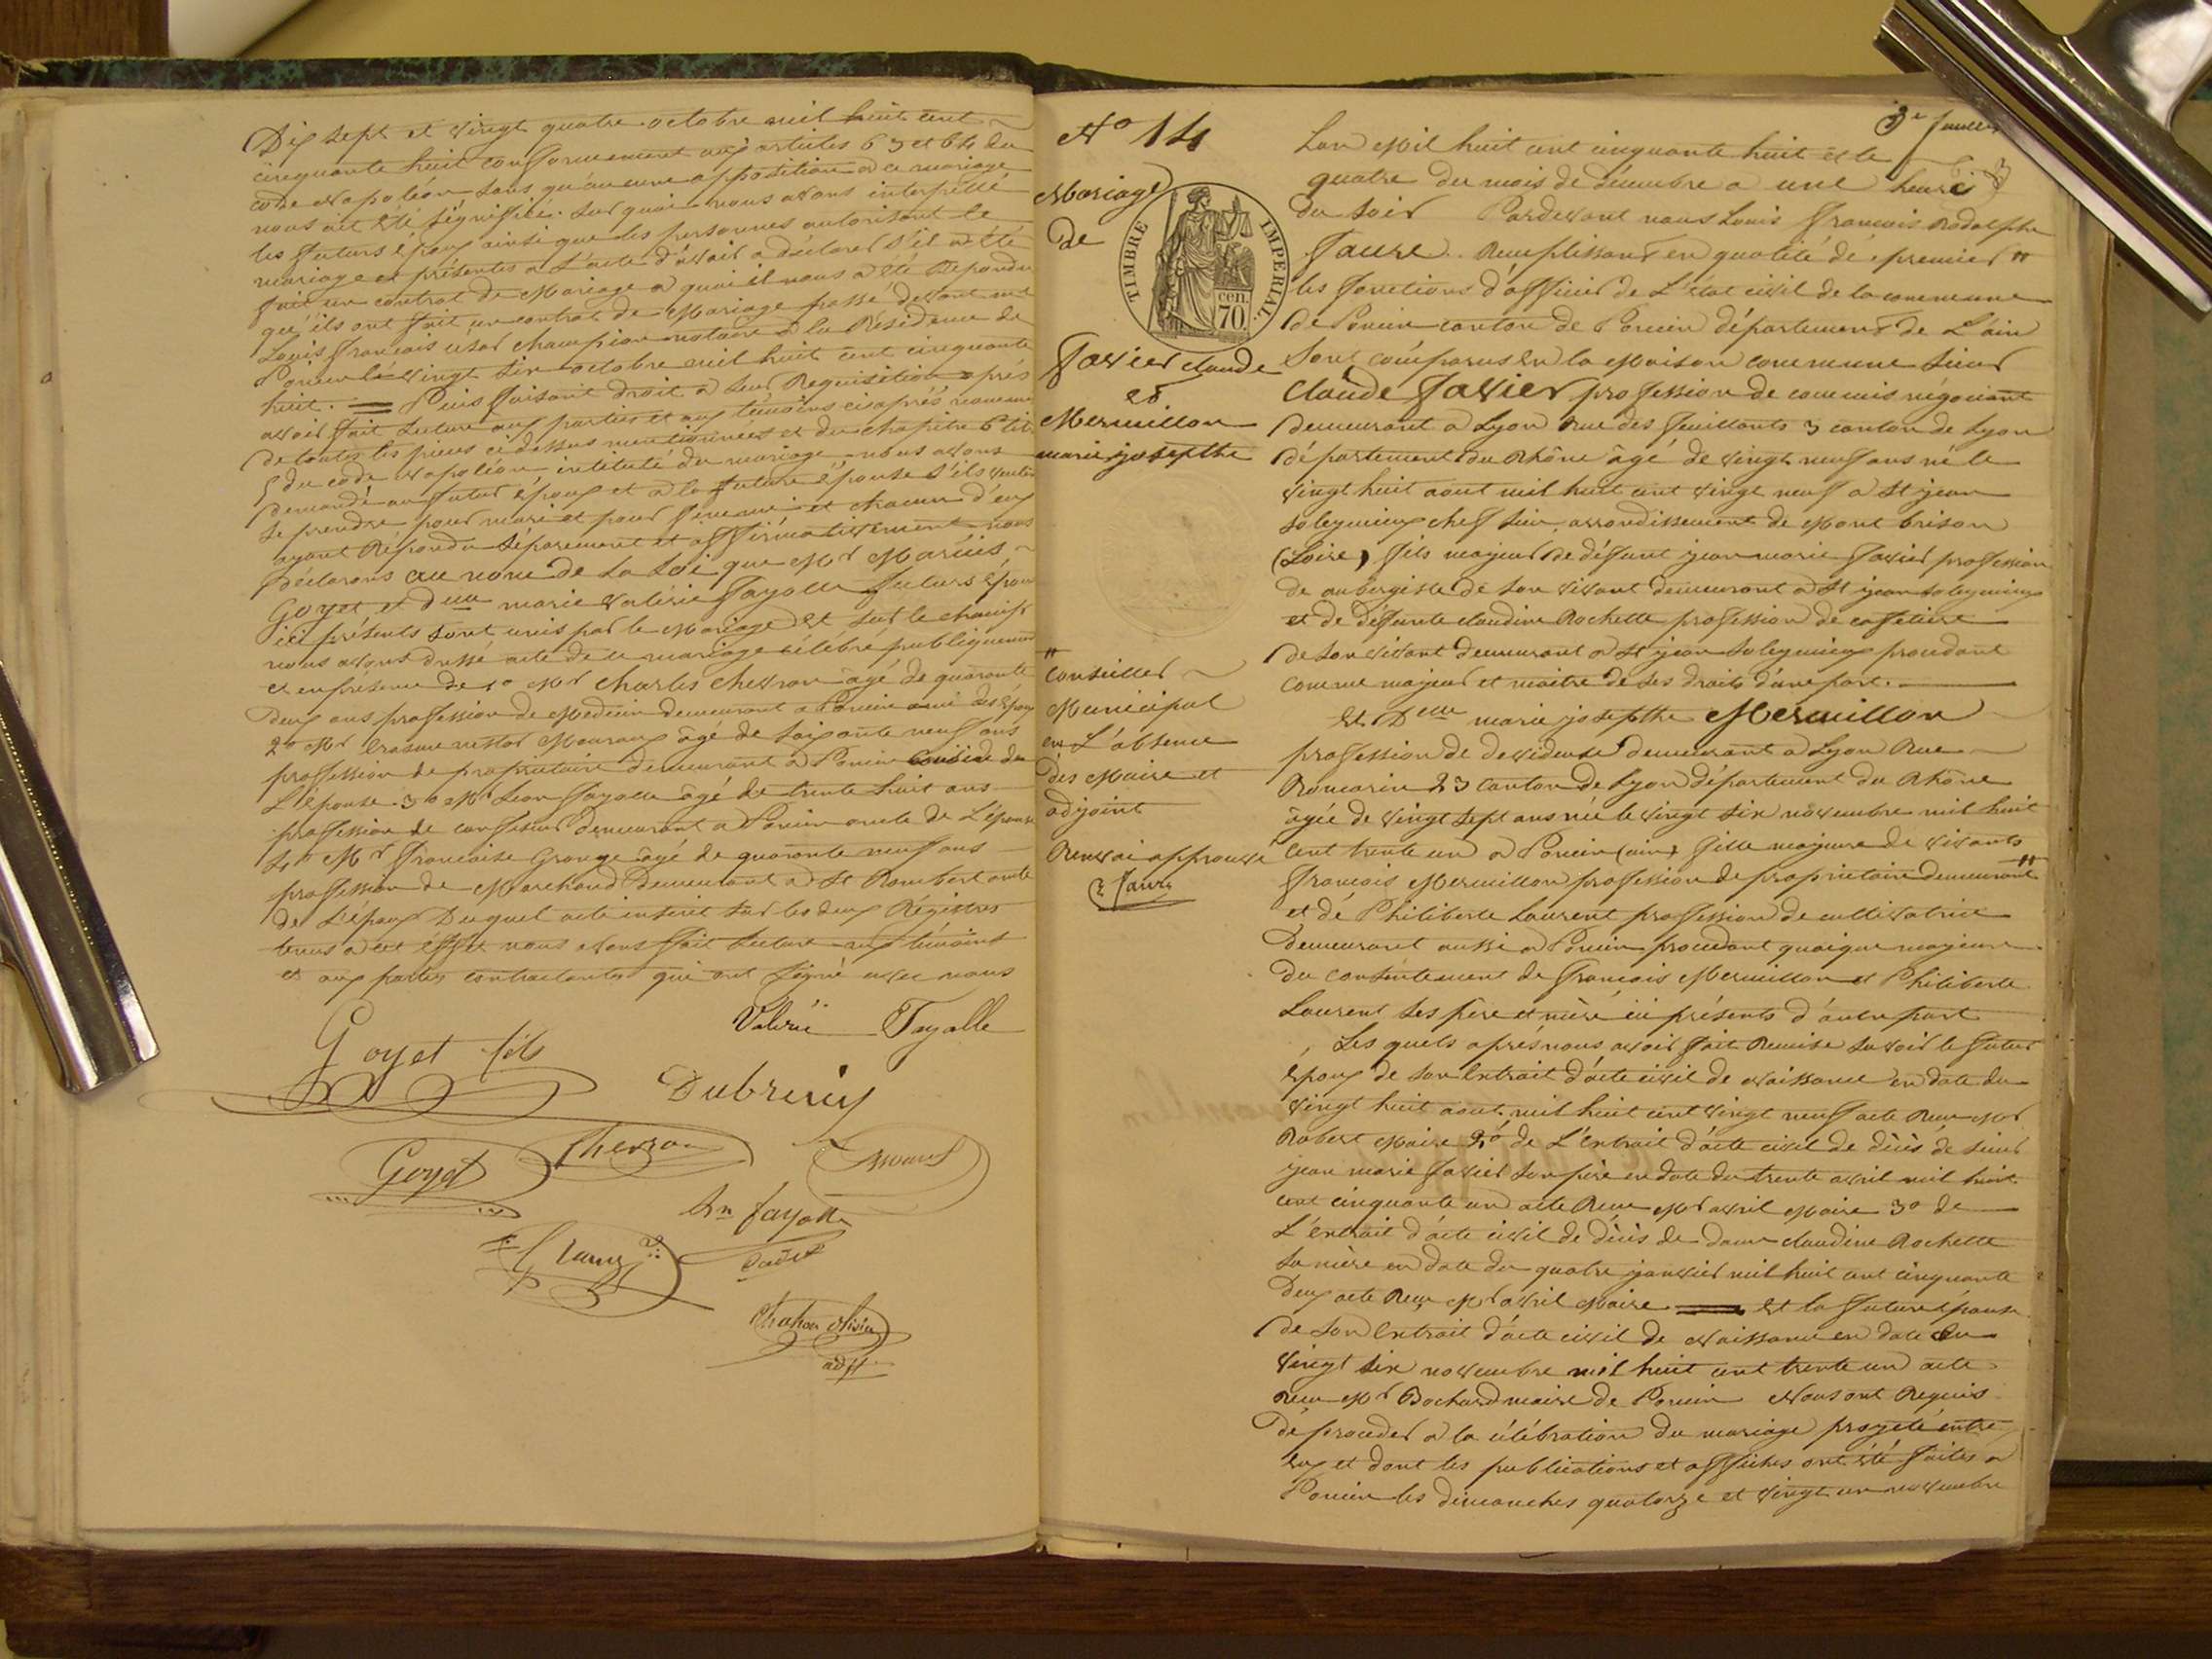 Dix sept et vingt quatre octobre mil huit cent
cinquante huit conformement aux articles 63 et 64 du
code Napoleon sans qu'aucune opposition à ce mariage
nous ait été signifiée. Sur quoi nous avons interpellé
les futurs époux ainsi que les personnes autorisant le
mariage et présentes a l'acte d'avoir a déclarer s'il a été
fait un contrat de Mariage a quoi il nous a été Repondu
qu'ils ont fait un contrat de Mariage passé devant me
Louis françois champion notaire a la Résidence de
Poncin le vingt six octobre mil huit cent cinquante
huit. Puis faisant droit a leur Requisition après
avoir fait lecture aux parties et aux témoins ci après
de toutes les pièces ci dessus mentionnées et du chapitre 6 tit
5 du code Napoleon intitulé du mariage nous avons
demandé au futur époux et a la future épouse s'ils veulent
se prendre pour mari et pour femme et chacun d'eux
ayant Répondu séparement et affirmativement nous
Déclarons au nom de la Loi que Mr Marius
Goyet et Dlle marie Valérie Fayolle futurs époux
ici présents sont unis par le Mariage et sur le champ
nous avons dressé acte de ce mariage célébré publiquement
et en présence de 1o Mr Charles Chevron âgé de quarante
Deux ans profession de Medecin demeurant a Poncin ami des époux
2o Mr Erasme nestor âgé de soixante neuf ans
profession de propriétaire demeurant a Poncin
L'épouse 3o Mr Leon Fayolle âgé de trente huit ans
profession de demeurant a Poncin oncle de L'épouse
4o Mr francoise Grange âgé de quarante neuf ans
profession de Marchand Demeurant a St Rambert
de L'époux Duquel acte inscrit sur les deux Régistres
tenus a cet effet nous avons fait lecture aux témoins
et aux parties contractantes qui ont signé avec nous
Goyet fils
Valérie Fayolle
Dubreuil
Goyet
Chevron
fayolle
cadet
adjt
No 14
Mariage
de
TIMBRE IMPERIAL.
cen.
70.
Favier claude
et
Mermillon
marie josephte
"
conseiller
Municipal
en L'absence
des Maire et
adjoint
Renvoi approuvé
Faure
3e feuillet
Lan Mil huit cent cinquante huit et le
quatre du mois de décembre a une heure
du soir Pardevant nous Louis françois Rodolphe
Faure. Remplissant en qualité de premier "
les fonctions d'officier de L'état civil de la commune
de Poncin canton de Poncin département de L'ain
Sont comparus en la Maison commune Sieur
Claude Favier profession de commis négociant
demeurant a Lyon Rue des feuillants 3 canton de Lyon
département du Rhône âgé de vingt neuf ans né le
vingt huit aout mil huit cent vingt neuf a St jean
Soleymieux chef lieu arrondissement de Mont brison
(Loire) fils majeur de défunt jean marie Favier profession
de aubergiste de son vivant demeurant a St jean soleymieux
et de défunte claudine Rochette profession de cafetière
de son vivant demeurant a St jean Soleymieux procédant
comme majeur et maitre de ses droits d'une part.
et Dlle marie josephte Mermillon
profession de devideuse demeurant a Lyon Rue
Romarin 23 canton de Lyon département du Rhône
âgée de vingt sept ans née le vingt six novembre mil huit
cent trente un a Poncin (ain) fille majeure de vivants
françois Mermillon profession de propriétaire demeurant "
et de Philiberte Laurent profession de cultivatrice
Demeurant aussi a Poncin procédant quoique majeure
du consentement de François Mermillon et Philiberte
Laurent ses père et mère ici présents d'autre part
Les quels après nous avoir fait Remise savoir le futur
époux de son Extrait d'acte civil de Naissance en date du
vingt huit aout mil huit cent vingt neuf acte Reçu Mr
Robert Maire 2o de L'extrait d'acte civil de décès de sieur
jean marie Favier son père en date du trente avril mil huit
cent cinquante un acte Reçu Mr avril Maire 3o de
L'extrait d'acte civil de décès de dame claudine Rochette
sa mère en date du quatre janvier mil huit cent cinquante
Deux acte Reçu Mr avril Maire et la future épouse
de son Extrait d'acte civil de Naissance en date du
vingt six novembre mil huit cent trente un acte
Reçu Mr Bochard maire de Poncin Nous ont Requis
de proceder a la célébration du mariage projeté entre
eux et dont les publications et affiches ont été faites a
Poncin les dimanches quatorze et vingt un novembre